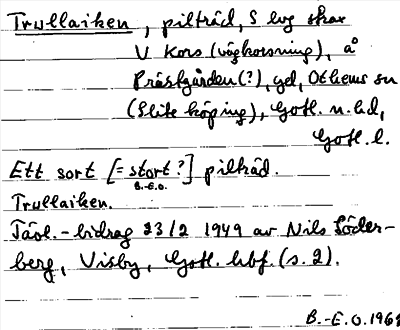 Trullaiken, pilträd, S lvg skar
V Kors (vägkorsning), å
Prästgården (?), gd, Othems sn
(Slite köping), Gotl. n. hd,
Gotl. l.
Ett sort [= stort ?] pilträd.
B.-E.O.
Trullaiken.
Tävl.-bidrag 23/2 1949 av Nils Söder-
berg, Visby, Gotl. hbf. (s. 2).
B.-E.O. 1961